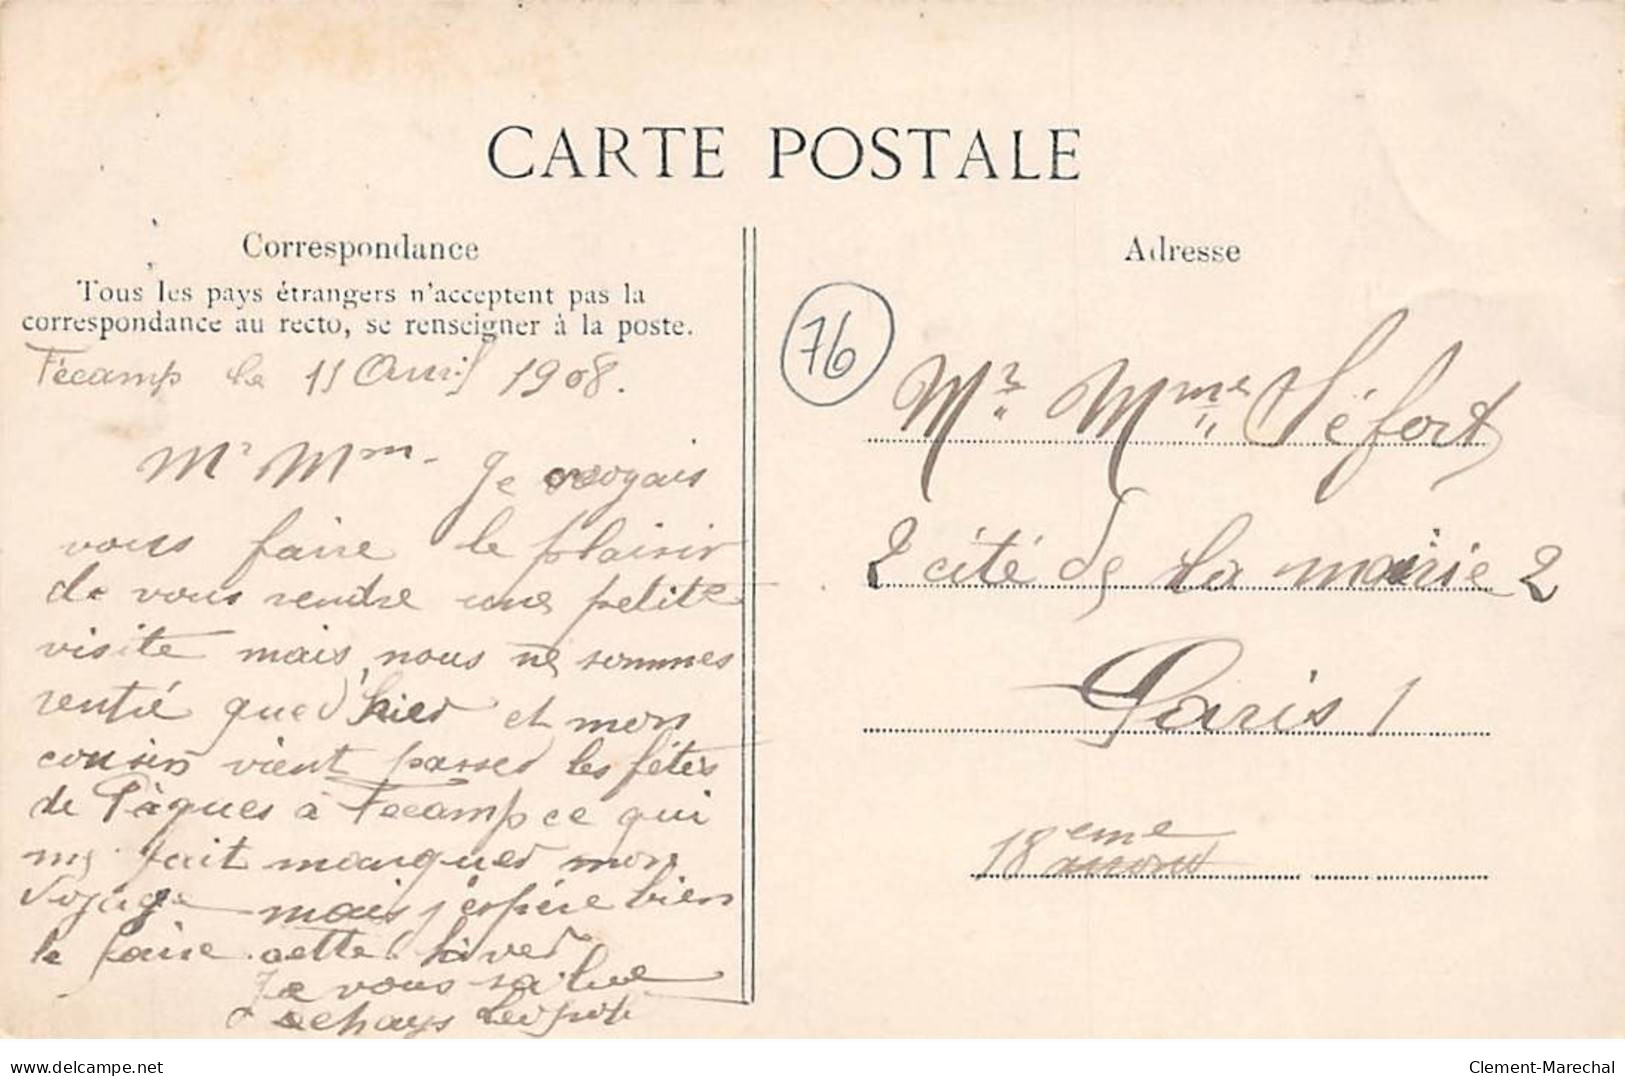 CARTE POSTALE
Correspondance
Tous les pays étrangers n'acceptent pas la
correspondance au recto, se renseigner à la poste.
Fécamp le 11 Avril 1908.
Mr Mme - Je croyais
vous faire le plaisir
de vous rendre une petite
visite mais nous ne sommes
rentré que d'hier et mon
cousin vient passer les fêtes
de Pâques à Fecamp ce qui
me fait manquer mon
voyage mais j'espère bien
le faire cette hiver
Je vous salue
Adresse
76
Mr Mme Séfort
2 cité de la mairie 2
Paris
18eme arrond
Clement-Marechal
delcampe.net